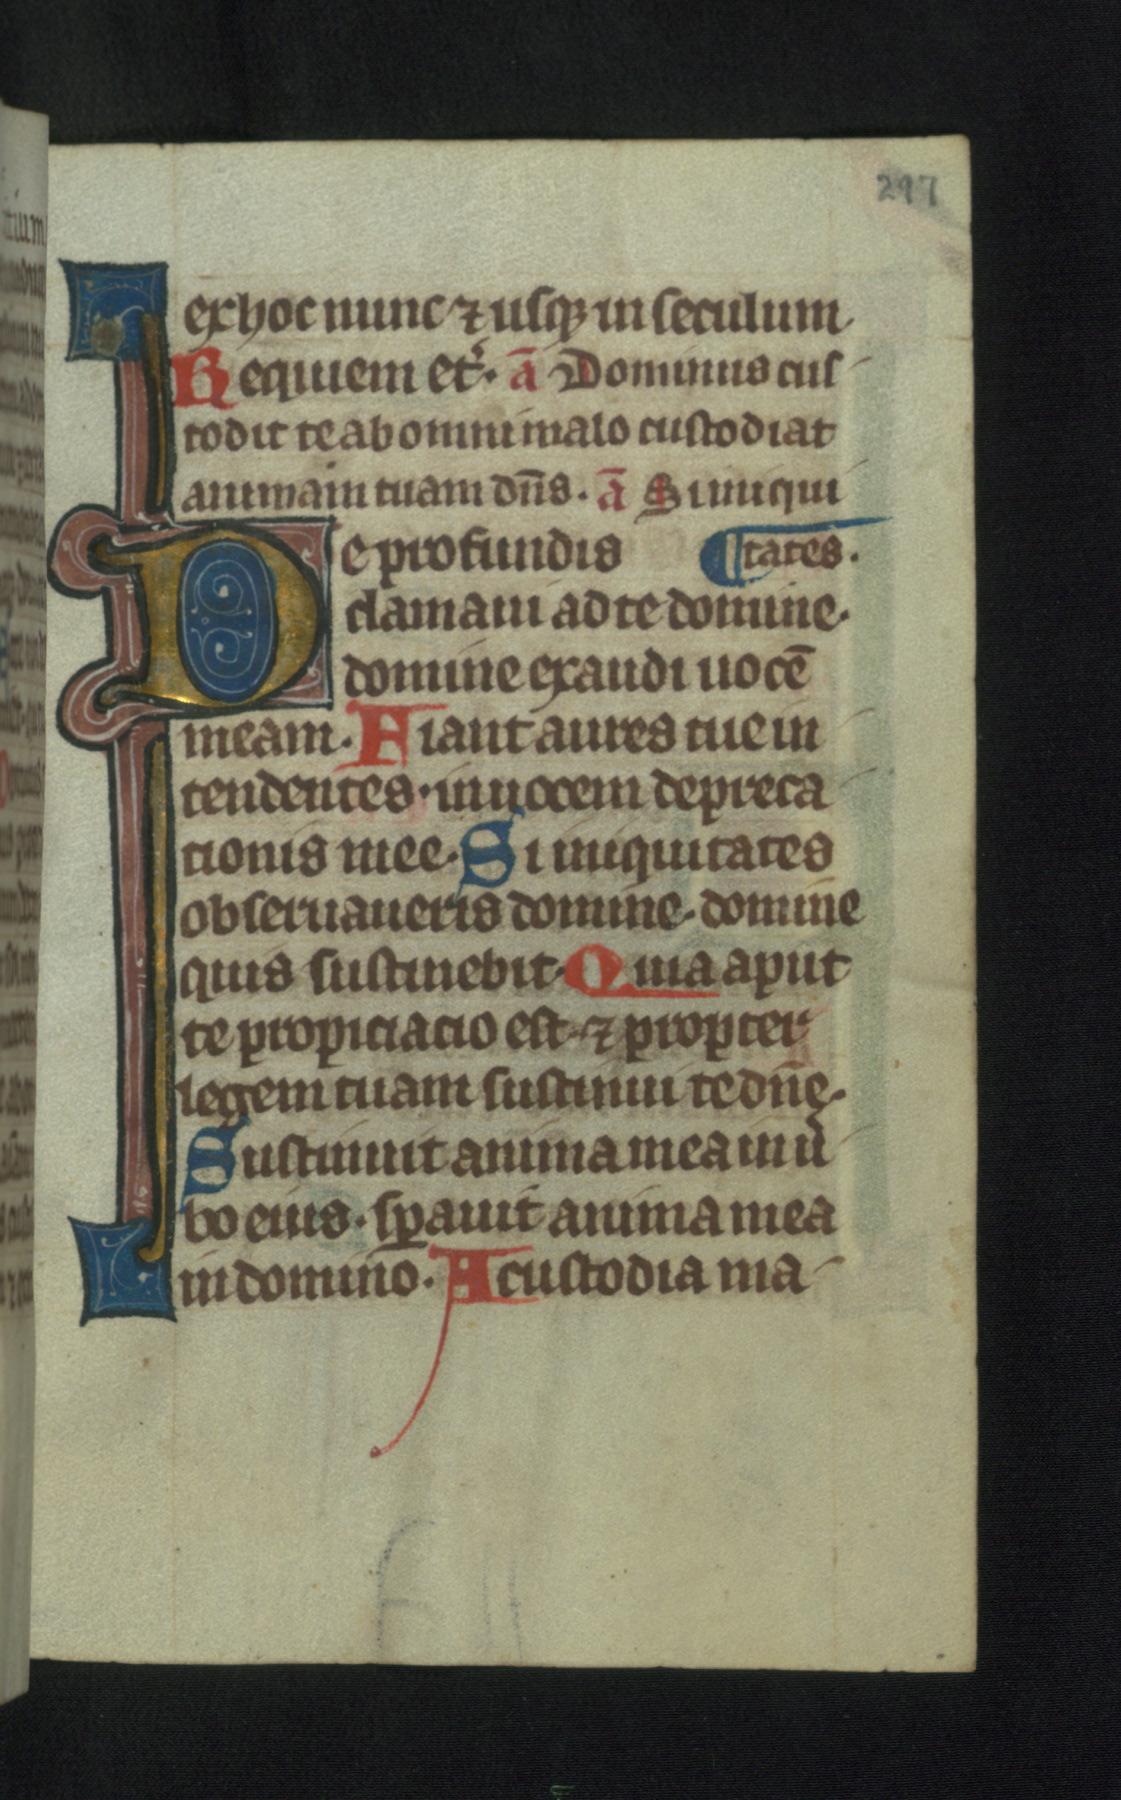 297
ex hoc nunc ⁊ usq₃ in seculum
Requiem et̉. ã Dominus cus
todit te ab omni malo custodiat
animam tuam dñs. ã Si iniqui
De profundis ¶ tates.
clamaui ad te domine.
domine exaudi uocē
meam. Fiant aures tue in
tendentes. in uocem depreca
tionis mee. Si iniquitates
obseruaueris domine. domine
quis sustinebit. Quia aput
te propiciacio est. ⁊ propter
legem tuam sustinui te dñe.
Sustinuit anima mea in u̾
bo eius. sꝑauit anima mea
in domino. A custodia ma